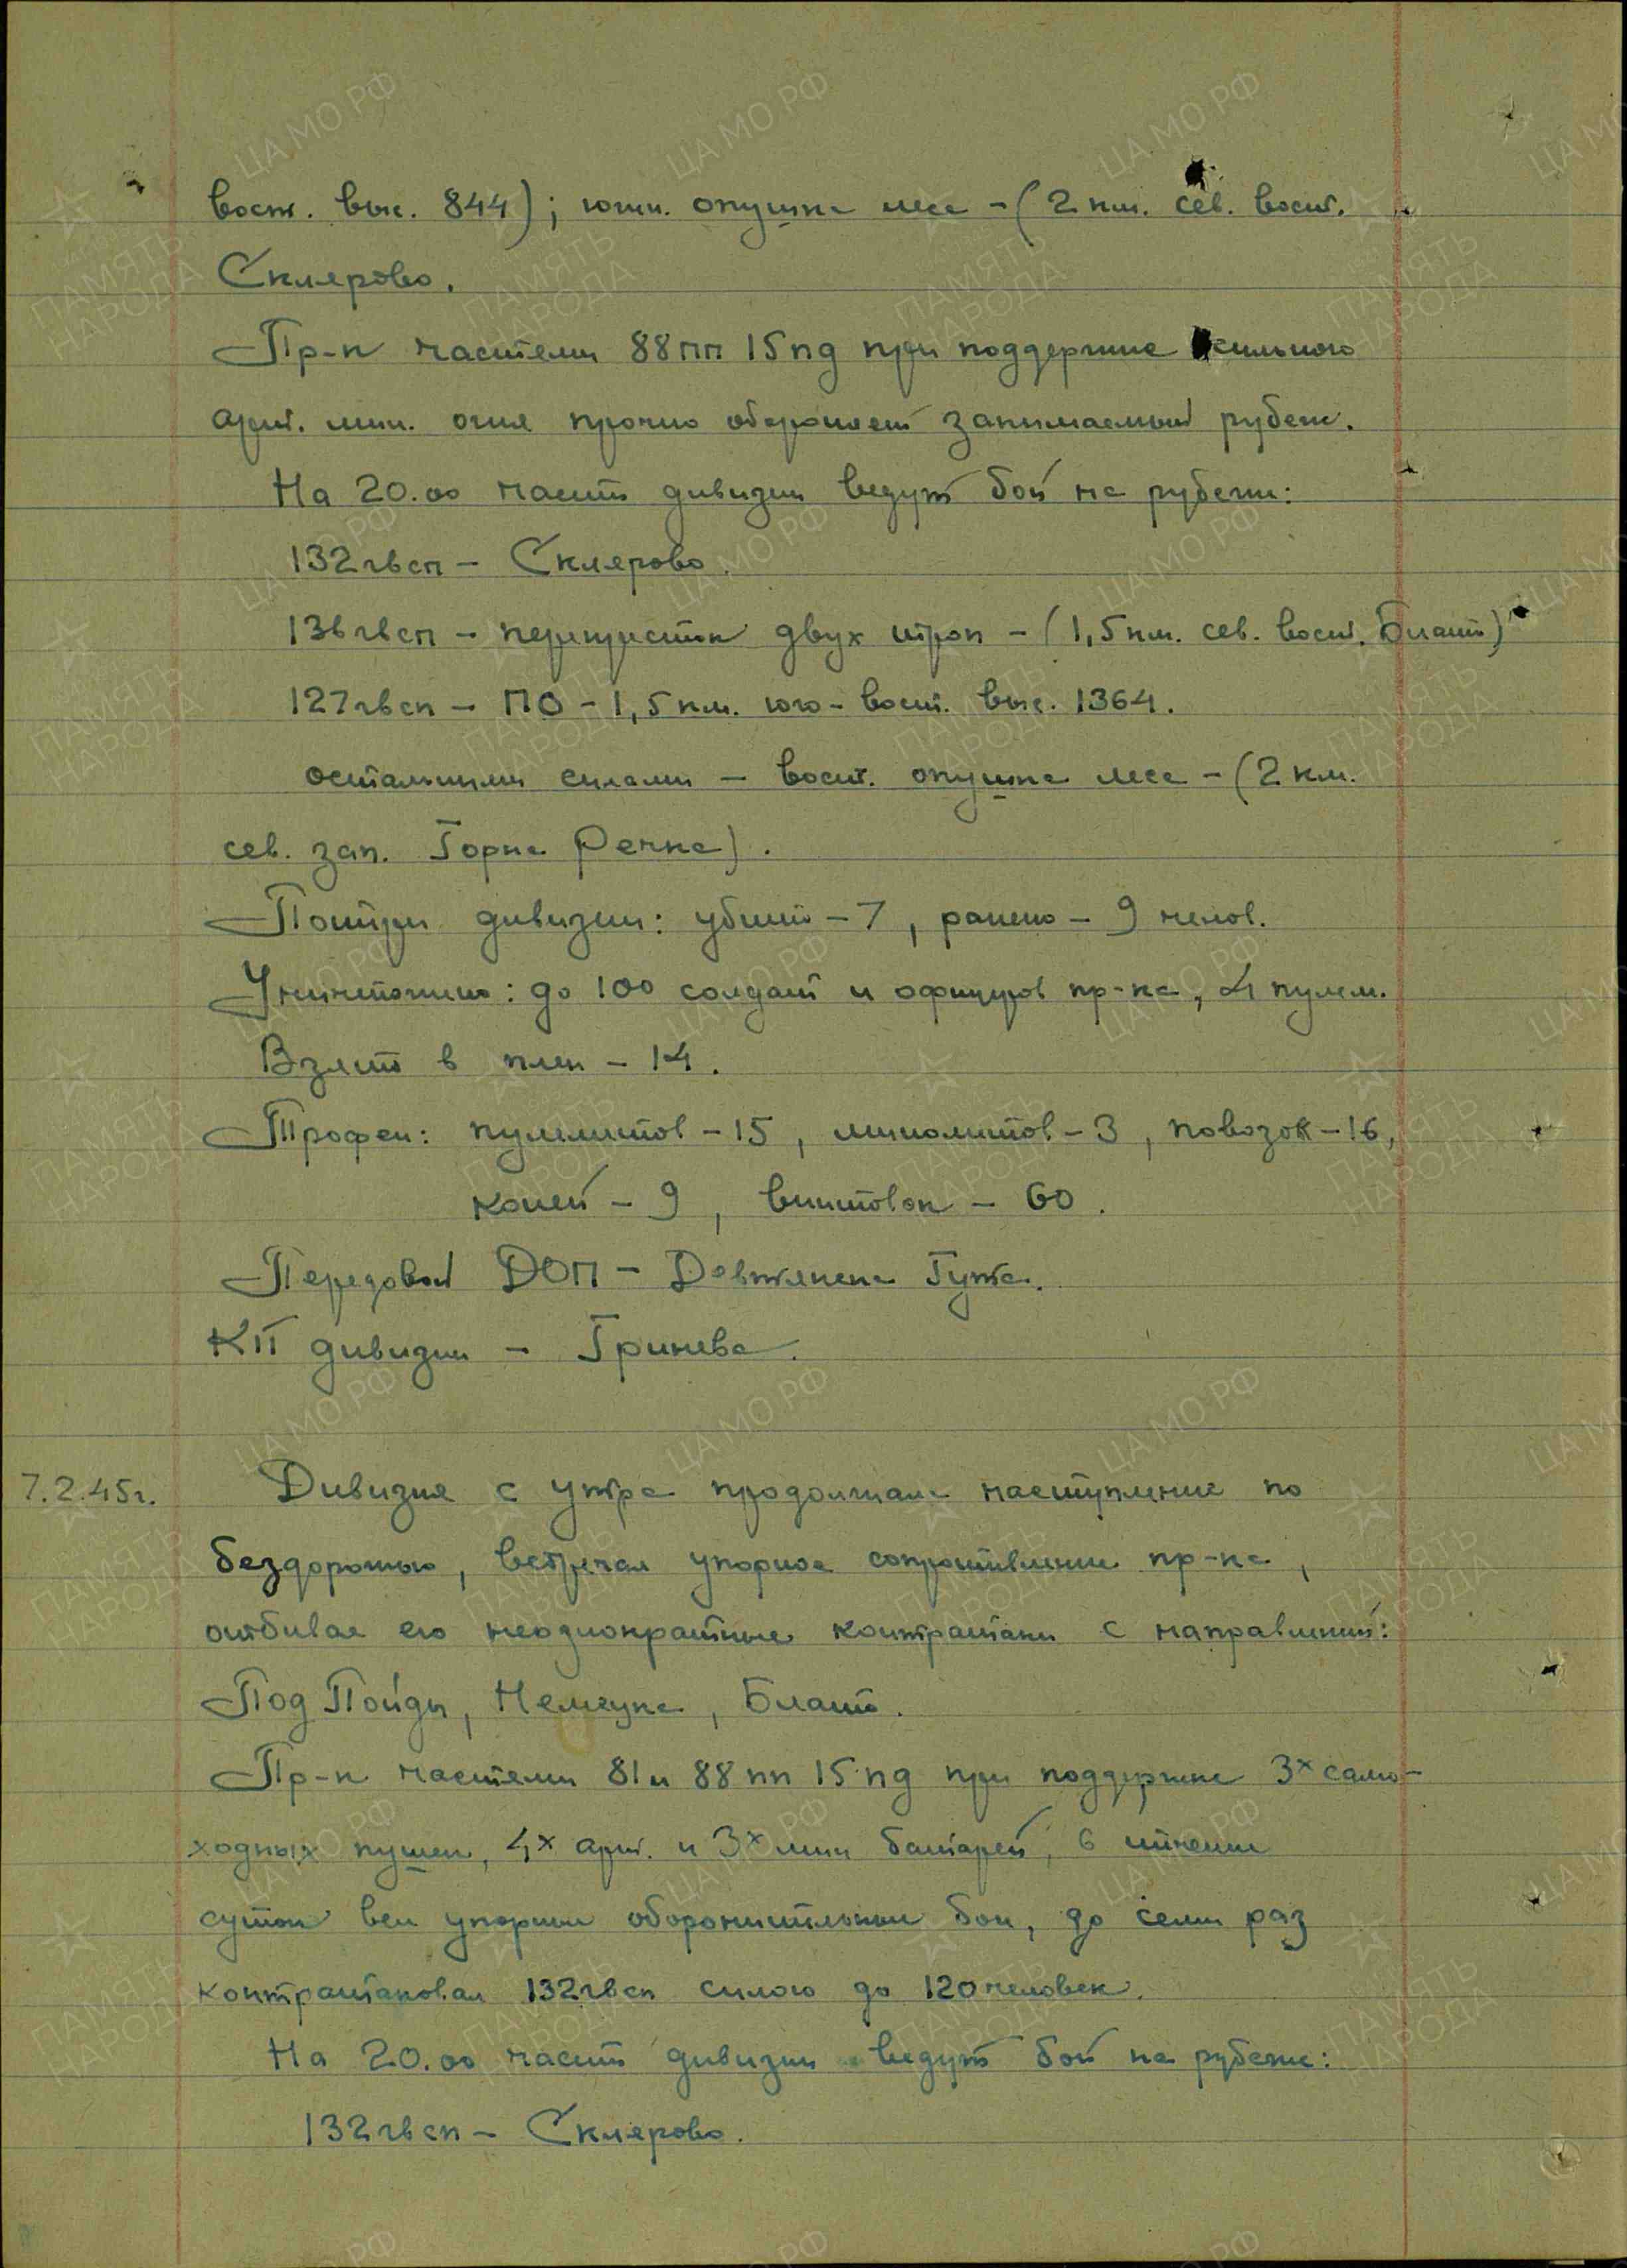 вост. выс. 844); южн. опушка леса - (2 км. сев. вост.
Склярово.
Пр-к частями 88 пп 15 пд при поддержке сильного
арт. мин. огня прочно обороняет занимаемый рубеж.
На 20.00 части дивизии ведут бой на рубеже:
132 гвсп - Склярово.
136 гвсп - перекресток двух троп - (1,5 км. сев. вост. Блато)
127 гвсп - ПО - 1,5 км. юго-вост. выс. 1364.
остальными силами - вост. опушка леса - (2 км.
сев. зап. Горна Речка).
Потери дивизии: убито - 7, ранено - 9 челов.
Уничтожено: до 100 солдат и офицеров пр-ка, 4 пулем.
Взято в плен - 14.
Трофеи: пулеметов - 15, минометов - 3, повозок - 16,
коней - 9, винтовок - 60.
Передовой ДОП - Гута.
КП дивизии - Гринева.
7.2.45г. Дивизия с утра продолжала наступление по
бездорожью, встречая упорное сопротивление пр-ка,
отбивая его неоднократные контратаки с направлений:
Под Пойды, Блато.
Пр-к частями 81 и 88 пп 15 пд при поддержке 3х само-
ходных пушек, 4х арт. и 3х мин батарей, в течении
суток вел упорные оборонительные бои, до семи раз
контратаковал 132 гвсп силою до 120 человек.
На 20.00 части дивизии ведут бой на рубеже:
132 гвсп - Склярово.
ЦА МО РФ
ПАМЯТЬ
НАРОДА